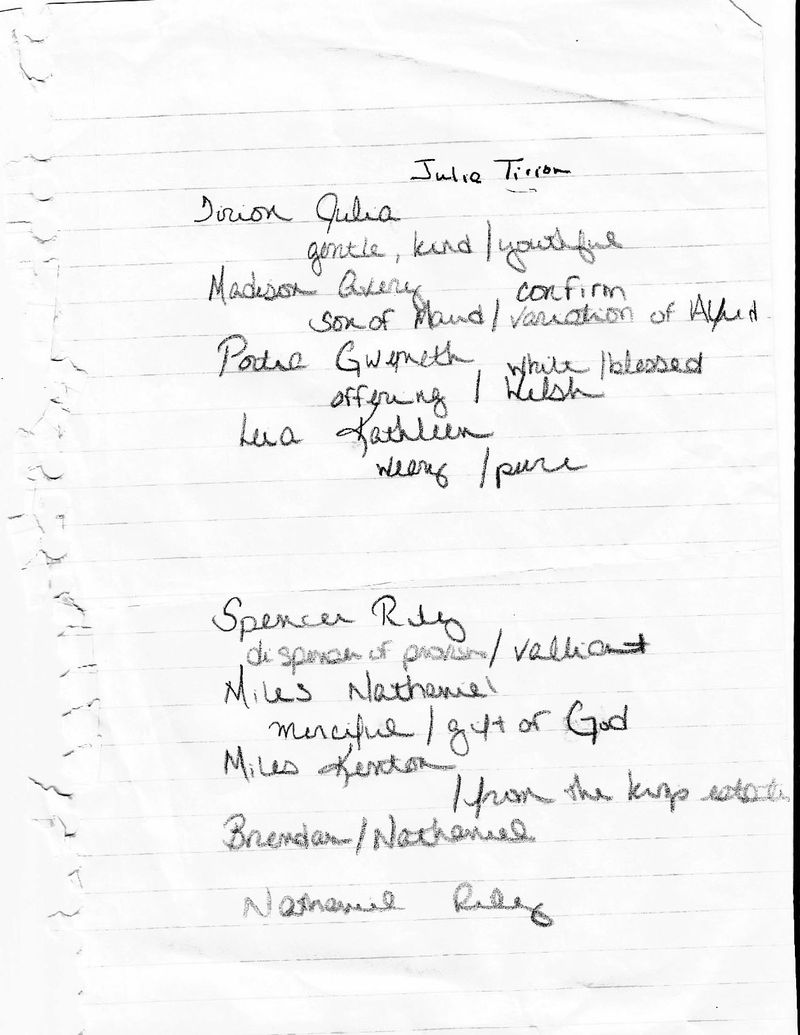 Julia Tirion
Tirion Julia
gentle, kind / youthful
Madison Avery confirm
son of Maud / variation of Alfred
Portia Gwyneth white / blessed
offering / Welsh
Lea Kathleen
weary / pure
Spencer Riley
dispenser of provision / valliant
Miles Nathaniel
merciful / gift of God
Miles Kenton
/ from the kings estate
Brendan / Nathaniel
Nathaniel Riley